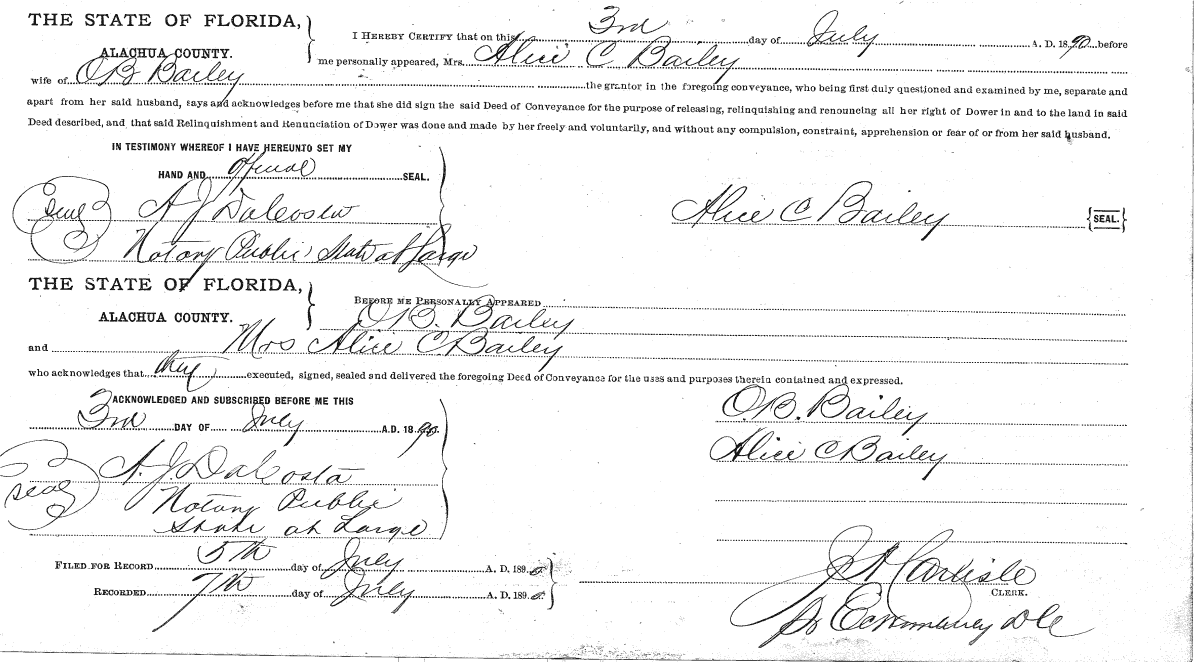 THE STATE OF FLORIDA,
ALACHUA COUNTY.
I HEREBY CERTIFY that on this 3rd day of July A. D. 1890 before
me personally appeared, Mrs. Alice C Bailey
wife of O B Bailey the grantor in the foregoing conveyance, who being first duly questioned and examined by me, separate and
apart from her said husband, says and acknowledges before me that she did sign the said Deed of Conveyance for the purpose of releasing, relinquishing and renouncing all her right of Dower in and to the land in said
Deed described, and that said Relinquishment and Renunciation of Dower was done and made by her freely and voluntarily, and without any compulsion, constraint, apprehension or fear of or from her said husband.
IN TESTIMONY WHEREOF I HAVE HEREUNTO SET MY
HAND AND official SEAL.
seal A J DaCosta
Alice C Bailey {SEAL.}
Notary Public State at Large
THE STATE OF FLORIDA,
ALACHUA COUNTY.
BEFORE ME PERSONALLY APPEARED
O B. Bailey
and Mrs Alice C Bailey
who acknowledges that they executed, signed, sealed and delivered the foregoing Deed of Conveyance for the uses and purposes therein contained and expressed.
ACKNOWLEDGED AND SUBSCRIBED BEFORE ME THIS
3rd DAY OF July A.D. 1890.
O.B. Bailey
Alice C Bailey
seal A. J. DaCosta
Notary Public
State at Large
FILED FOR RECORD 5th day of July A. D. 1890
RECORDED 7th day of July A. D. 1890
J A Carlisle
CLERK.
D C